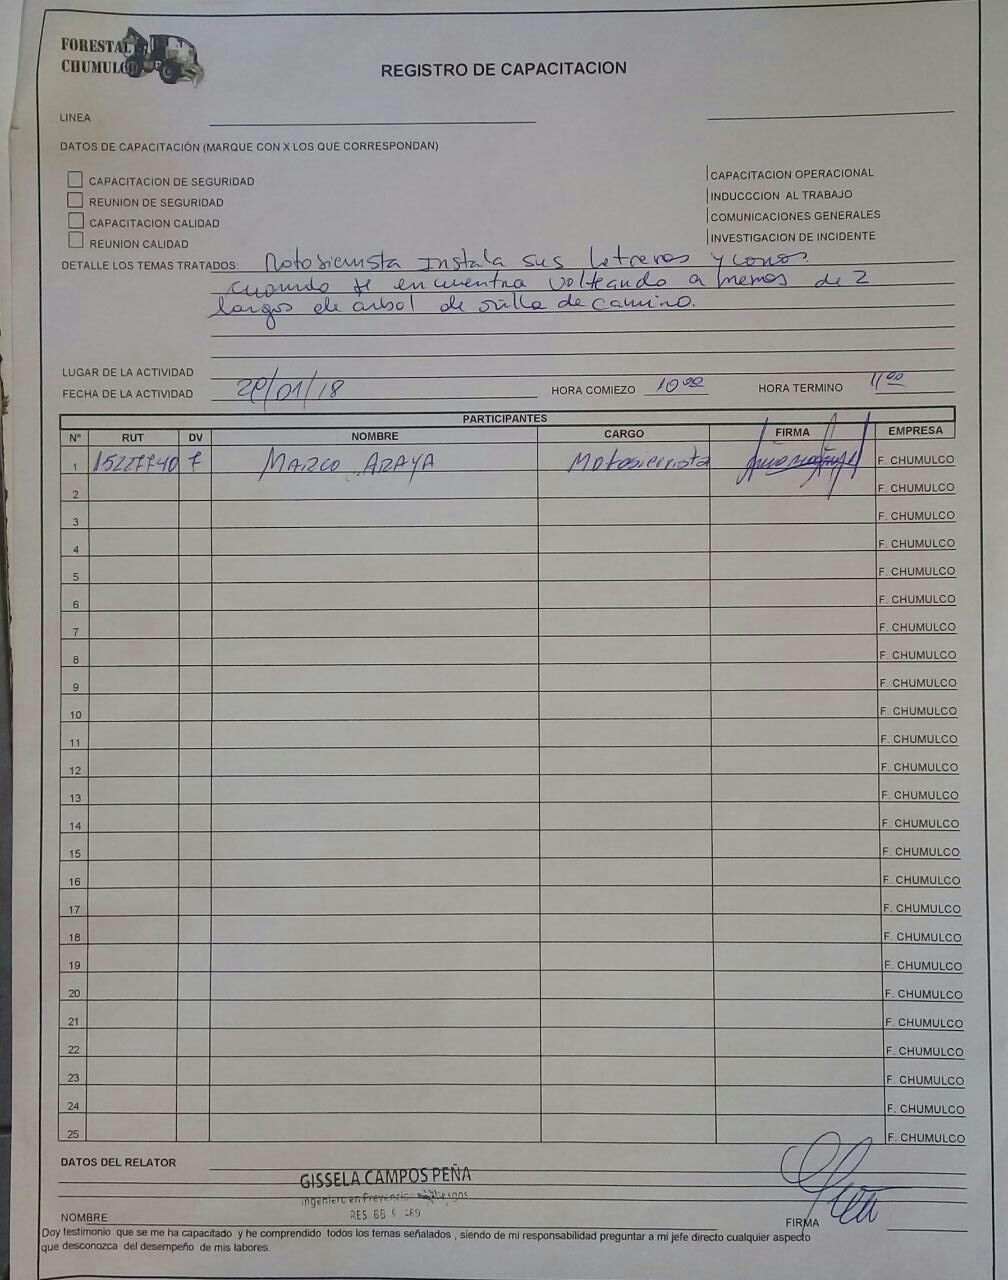 FORESTAL
CHUMULCO
REGISTRO DE CAPACITACION
LINEA
DATOS DE CAPACITACIÓN (MARQUE CON X LOS QUE CORRESPONDAN)
CAPACITACION DE SEGURIDAD CAPACITACION OPERACIONAL
REUNION DE SEGURIDAD INDUCCCION AL TRABAJO
CAPACITACION CALIDAD COMUNICACIONES GENERALES
REUNION CALIDAD INVESTIGACION DE INCIDENTE
DETALLE LOS TEMAS TRATADOS: Motosierrista Instala sus letreros y conos.
cuando se encuentra volteando a menos de 2
largos de arbol de orilla de camino.
LUGAR DE LA ACTIVIDAD
FECHA DE LA ACTIVIDAD /01/18 HORA COMIEZO 10:00 HORA TERMINO 11:00
PARTICIPANTES
N° RUT DV NOMBRE CARGO FIRMA EMPRESA
1 15227740 7 MARCO ARAYA Motosierrista F. CHUMULCO
2 F. CHUMULCO
3 F. CHUMULCO
4 F. CHUMULCO
5 F. CHUMULCO
6 F. CHUMULCO
7 F. CHUMULCO
8 F. CHUMULCO
9 F. CHUMULCO
10 F. CHUMULCO
11 F. CHUMULCO
12 F. CHUMULCO
13 F. CHUMULCO
14 F. CHUMULCO
15 F. CHUMULCO
16 F. CHUMULCO
17 F. CHUMULCO
18 F. CHUMULCO
19 F. CHUMULCO
20 F. CHUMULCO
21 F. CHUMULCO
22 F. CHUMULCO
23 F. CHUMULCO
24 F. CHUMULCO
25 F. CHUMULCO
DATOS DEL RELATOR
GISSELA CAMPOS PEÑA
Ingeniero en
RES BB
NOMBRE FIRMA
Doy testimonio que se me ha capacitado y he comprendido todos los temas señalados , siendo de mi responsabilidad preguntar a mi jefe directo cualquier aspecto
que desconozca del desempeño de mis labores.